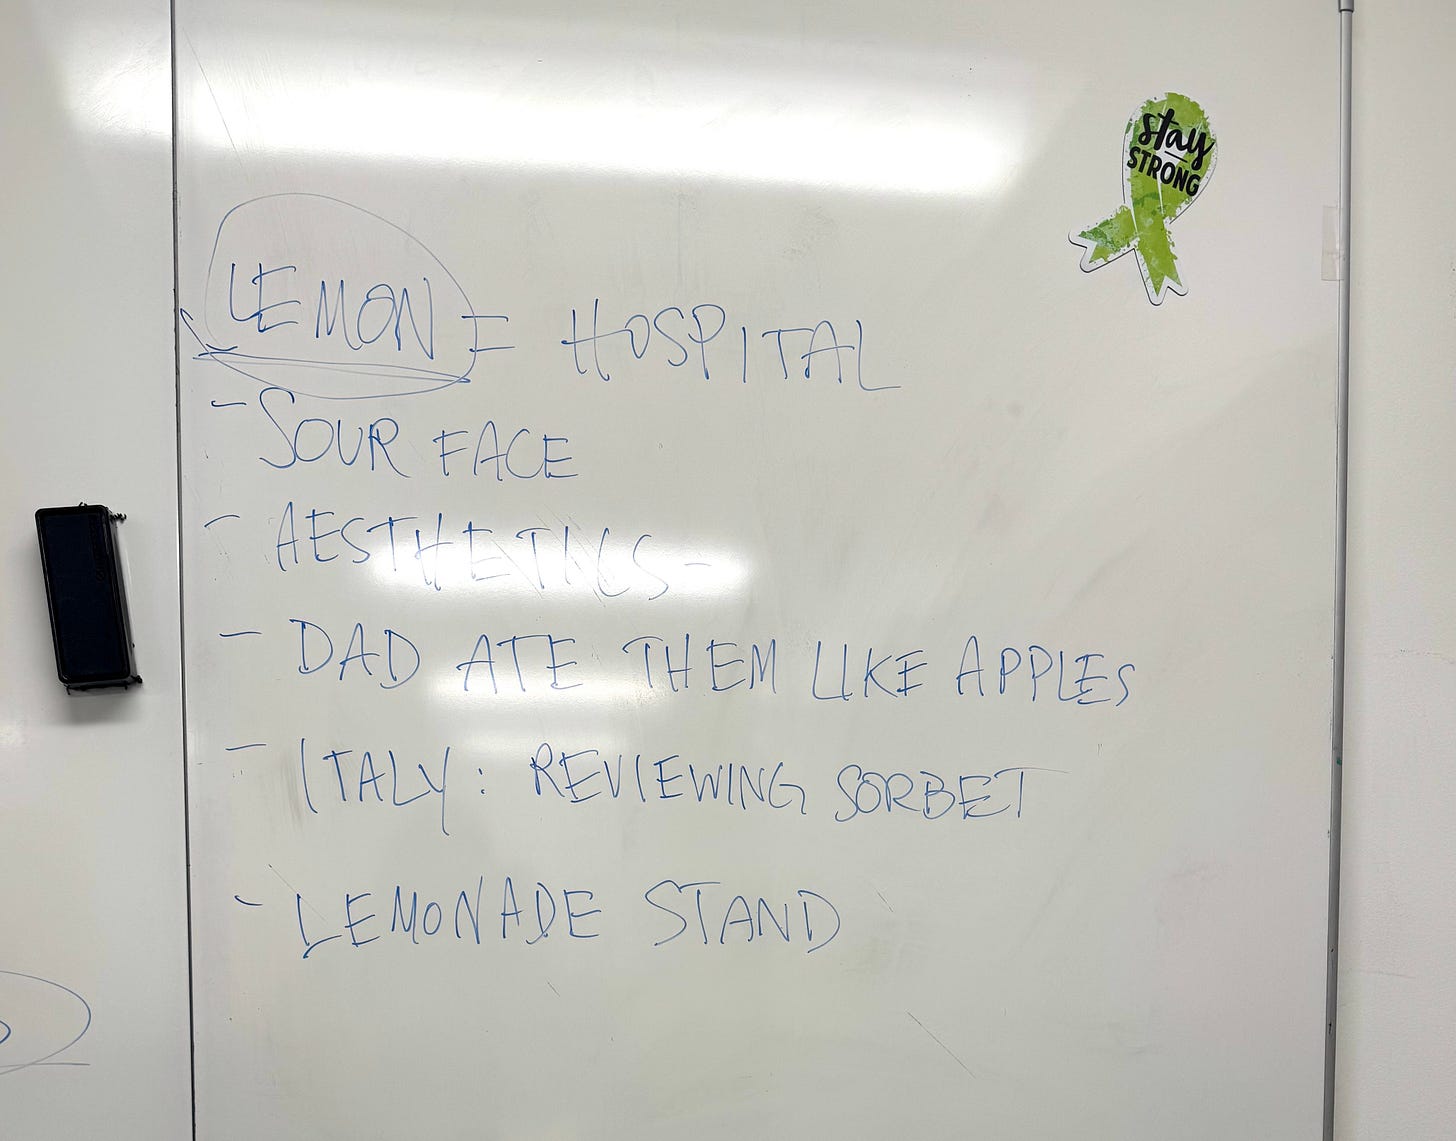 stay
STRONG
LEMON = HOSPITAL
- SOUR FACE
- AESTHETICS -
- DAD ATE THEM LIKE APPLES
- ITALY: REVIEWING SORBET
- LEMONADE STAND